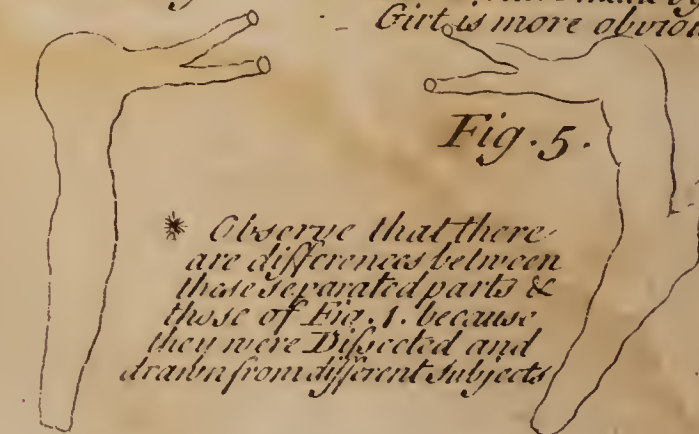 Girt is more
Fig. 5.
* Observe that there
are differences between
these separated parts &
those of Fig. 1. because
they were Dissected and
drawn from different Subjects